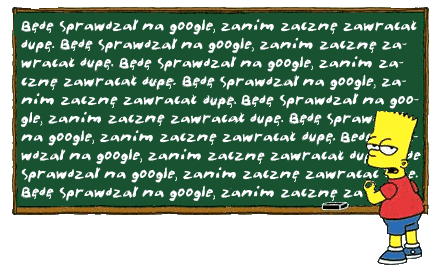 Będę sprawdzał na google, zanim zacznę zawracał
dupę. Będę sprawdzał na google, zanim zacznę za-
wracał dupę. Będę sprawdzał na google, zanim za-
cznę zawracał dupę. Będę sprawdzał na google, za-
nim zacznę zawracał dupę. Będę sprawdzał na goo-
gle, zanim zacznę zawracał dupę. Będę spraw
na google, zanim zacznę zawracał dupę. Będę
wdzał na google, zanim zacznę zawracał dup de
sprawdzał na google, zanim zacznę zawracać e.
Będę sprawdzał na google, zanim zacznę za